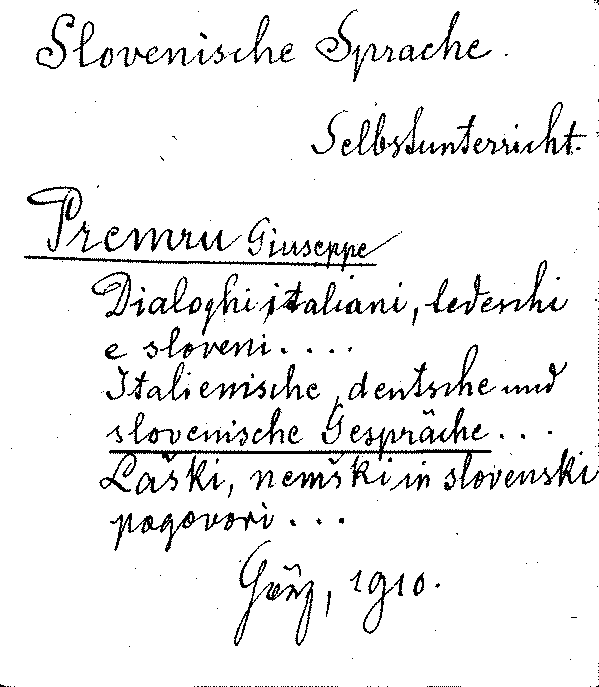 Slovenische Sprache.
Selbstunterricht.
Premru Giuseppe
Dialoghi italiani, tedeschi
e sloveni....
Italienische, deutsche und
slovenische Gespräche...
Laški, nemški in slovenski
pogovori...
Görz, 1910.